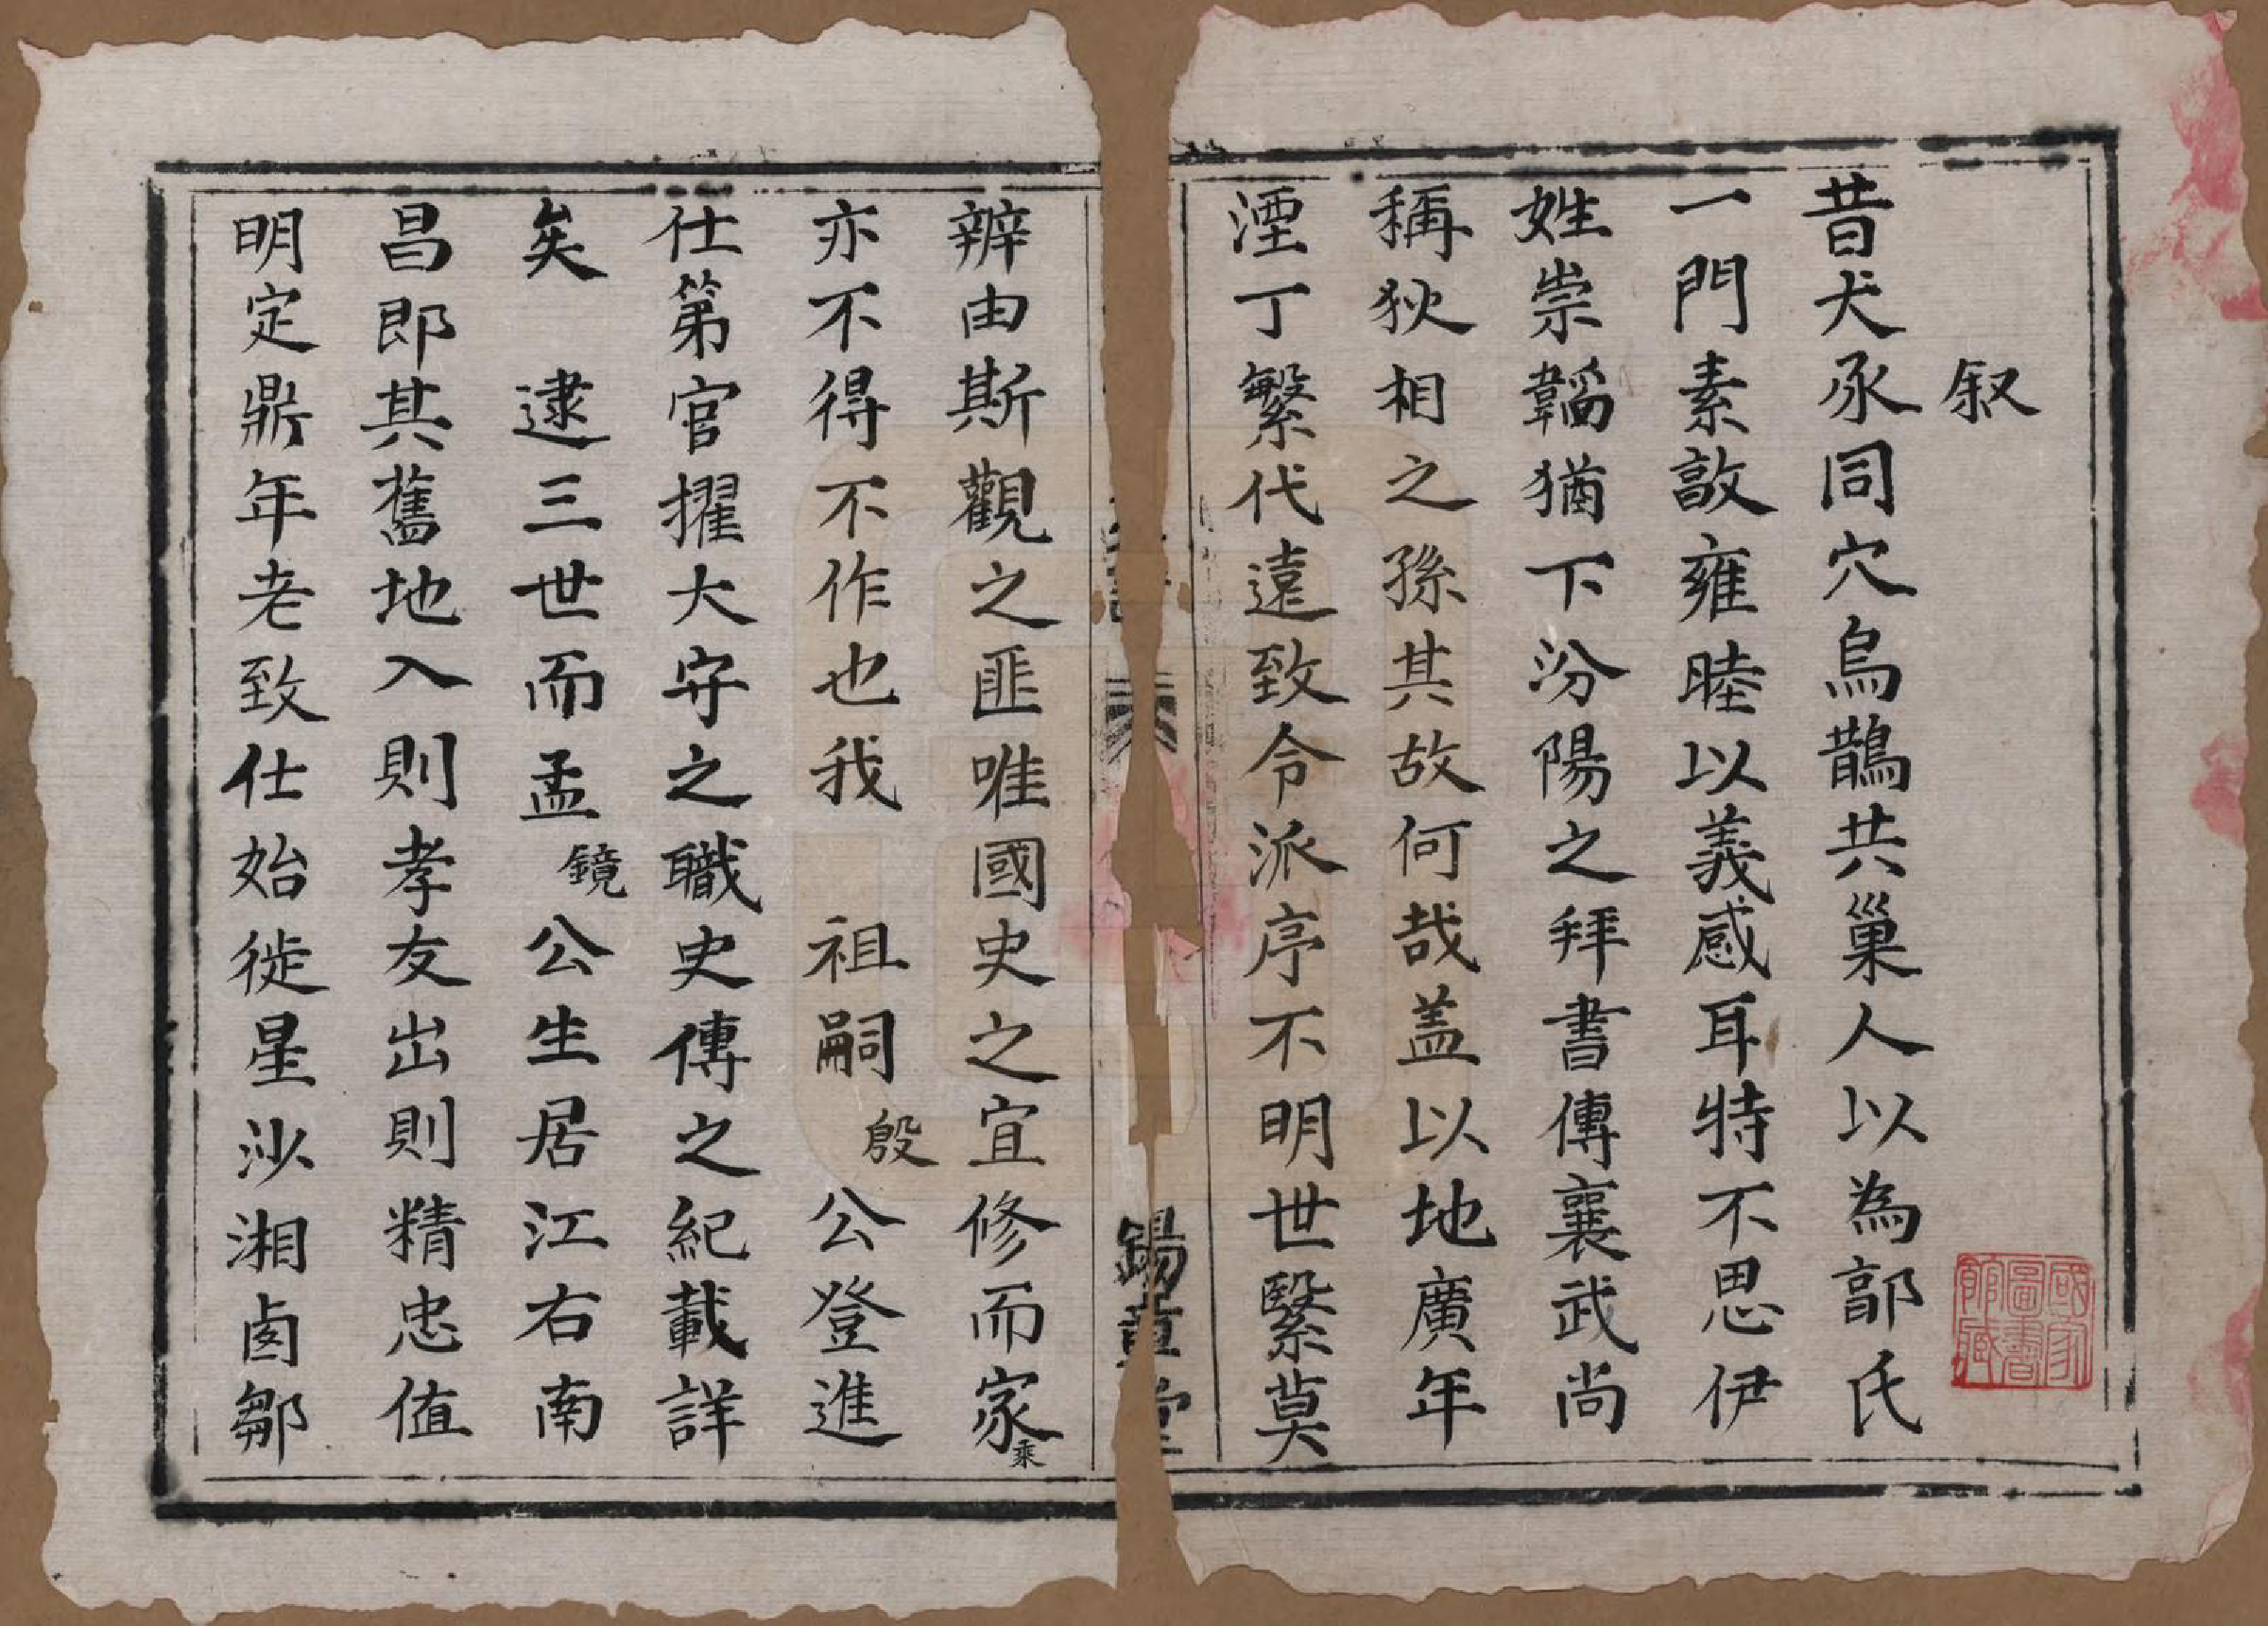 叙
昔犬承同穴烏鵲共巢人以為郭氏
一門素敦雍睦以義感耳特不思伊
姓崇韜猶下汾陽之拜書傳襄武尚
稱狄相之孫其故何哉盖以地廣年
湮丁繁代遠致令派序不明世繫莫
錫 堂
辨由斯觀之匪唯國史之宜修而家乘
亦不得不作也我 祖嗣殷公登進
仕第官擢大守之職史傳之紀載詳
矣 逮三世而孟鏡公生居江右南
昌郎其舊地入則孝友出則精忠值
明定鼎年老致仕始徙星沙湘鹵鄒
國家圖書館藏